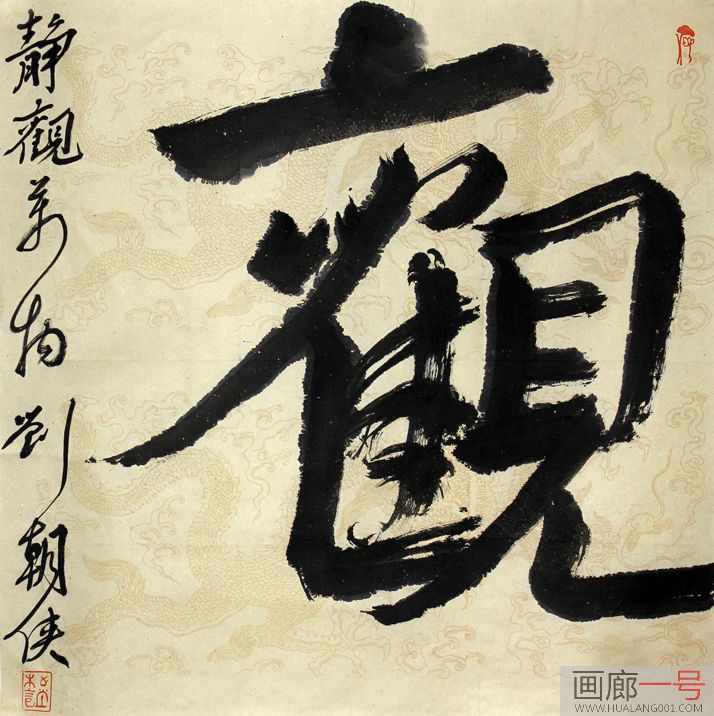 觀
靜觀萬物 劉朝侠
画廊一号
WWW.HUALANG001.COM